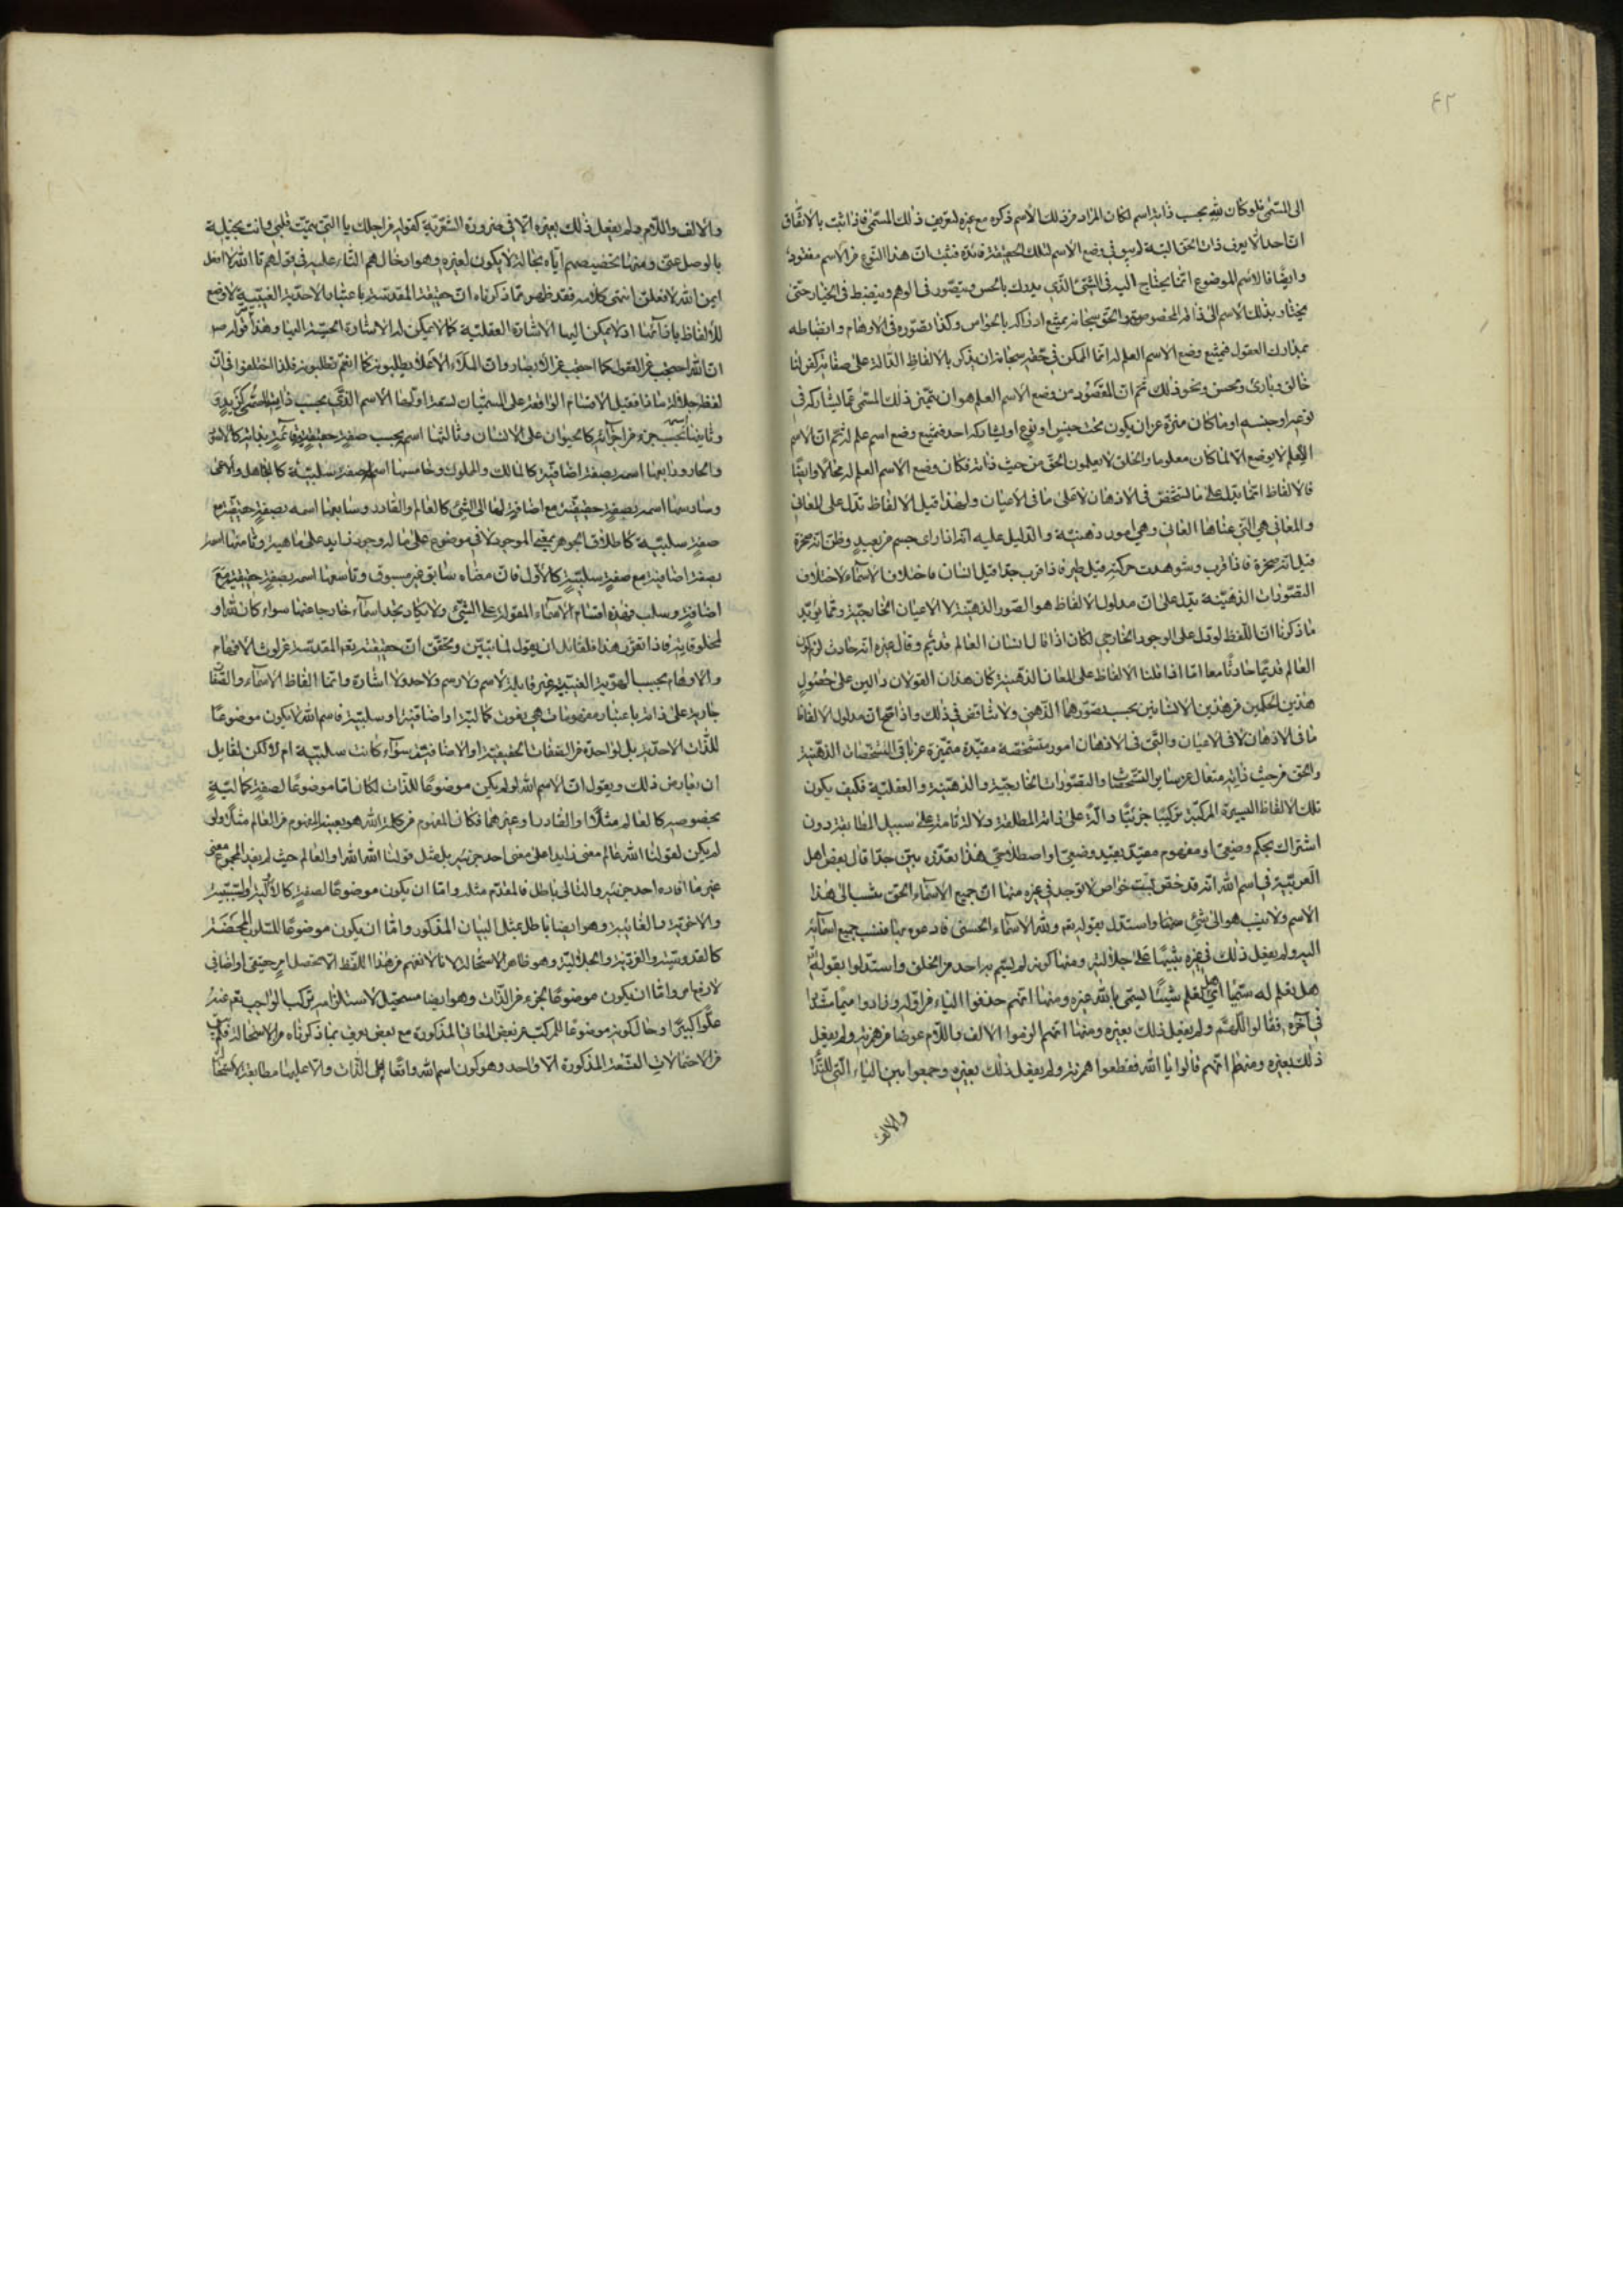 ٤٢
الى المسمى فلو كان لله بحسب ذاته اسم لكان المراد من ذلك الاسم ذكره مع غيره لتعريف ذلك المسمى فاذا ثبت بالاتفاق
ان احدا لا يعرف ذات الحق البتة لم يبق في وضع الاسم لتلك الحقيقة فائدة فثبت ان هذا النوع من الاسم مفقود
وايضا فالاسم الموضوع انما يحتاج اليه في الشئ الذي يدرك بالحس ويتصور في الوهم وينضبط في الخيار حتى
يختار بذلك الاسم الى ذاته المخصوصة والحق سبحانه يمتنع ادراكه بالحواس وكذا تصوره في الاوهام وانضباطه
بمدارك العقول فيمتنع وضع الاسم العلم له انما الممكن في حقه سبحانه ان يذكر بالالفاظ الدالة على صفاته كقولنا
خالق وبارئ ومحسن ونحو ذلك ثم ان المقصود من وضع الاسم العلم هو ان يتميز ذلك المسمى عما يشاركه في
نوعه او جنسه او ما كان منزه عن ان يكون تحت جنس او نوع او يشاركه احد فيمتنع وضع اسم علم له ثم ان الاسم
العلم لا يوضع الا لما كان معلوما والخلق لا يعلمون الحق من حيث ذاته فكان وضع الاسم العلم له محالا وايضا
فالالفاظ انما تدل على ما تشخص في الاذهان لا على ما في الاعيان ولهذا قيل الالفاظ تدل على المعاني
والمعاني هي التي عناها العاني وهي امور ذهنية والدليل عليه انه اذا راى جسم من بعيد وظن انه صخرة
قيل انه صخرة فاذا قرب وشوهدت حركته قيل طير فاذا قرب جدا قيل انسان فاختلاف الاسماء لاختلاف
التصورات الذهنية يدل على ان مدلول الالفاظ هو الصور الذهنية لا الاعيان الخارجية ومما يؤيد
ما ذكرنا ان اللفظ لو دل على الوجود الخارجي لكان اذا قال انسان العالم قديم وقال غيره انه حادث لزم كون
العالم قديما حادثا معا اما اذا قلنا الالفاظ على المعاني الذهنية كان هذان القولان دالين على حصول
هذين الحكمين من هذين الانسانين بحسب تصورهما الذهني ولا تناقض في ذلك واذا اتجه ان مدلول الالفاظ
ما في الاذهان لا في الاعيان والتي في الاذهان امور متشخصة مقيدة متميزة عن باقي المتشخصات الذهنية
والحق من حيث ذاته متعال عن سائر التشخصات والتصورات الخارجية والذهنية والعقلية فكيف يكون
تلك الالفاظ اليسيرة المركبة تركيبا جزئيا دالة على ذاته المطلقة دلالة تامة على سبيل المطابقة دون
اشتراك بحكم وضعي او مفهوم مقيد بقيد وضعي او اصطلاحي هذا تعذره بين جدا قال بعض اهل
العربية في اسم الله انه قد خص بست خواص لا توجد في غيره منها ان جميع الاسماء الحق ينسب الى هذا
الاسم ولا ينسب هو الى شئ منها واستدل بقوله تع ولله الاسماء الحسنى فادعوه بها فنسب جميع اسمائه
اليه ولم يفعل ذلك في غيره تنبيها على جلالته ومنها كونه لم يسم به احد من الخلق واستدلوا بقوله تع
هل تعلم له سميا اي هل تعلم شيئا يسمى بالله غيره ومنها انهم حذفوا الياء من اوله وزادوا ميما مشددا
في آخره فقالوا اللهم ولم يفعل ذلك بغيره ومنها انهم الزموا الالف واللام عوضا من همزته ولم يفعل
ذلك بغيره ومنها انهم قالوا يا الله فقطعوا همزته ولم يفعل ذلك بغيره وجمعوا بين الياء التي للندا
والالف
والالف واللام ولم يفعل ذلك بغيره الا في ضرورة الشعرية كقوله من اجلك يا التي تيمت قلبي وانت بخيلة
بالوصل عني ومنها تخصيصهم اياه بحالة لا يكون لغيره وهو ادخالهم التاء عليه في قولهم تا الله لا افعل
ايمن الله لافعلن انتهى كلامه فقد ظهر مما ذكرناه ان حقيقته المقدسة باعتبار الاحدية الغيبية لا وضع
للالفاظ بازائها اذ لا يمكن اليها الاشارة العقلية كما لا يمكن له الاشارة الحسية اليها وهذا سر قوله ص
ان الله احتجب عن العقول كما احتجب عن الابصار وان الملاء الاعلى يطلبونه كما انتم تطلبونه فلذا اختلفوا في ان
لفظ جلالة ماذا فقيل الاقسام الواقعة على المسميات تسعة اولها الاسم الذي بحسب ذاته كزيد
وثانيها بحسب جزء من اجزائه كالحيوان على الانسان وثالثها اسمه بحسب صفة حقيقية قائمة بذاته كالاسود
والحار ورابعها اسمه بصفة اضافية كالمالك والمملوك وخامسها اسمه بصفة سلبية كالجاهل والاعمى
وسادسها اسمه بصفة حقيقية مع اضافة لها الى الشئ كالعالم والقادر وسابعها اسمه بصفة حقيقية مع
صفة سلبية كاطلاق الجوهر بمعنى الموجود لا في موضوع على ما له وجود زايد على ماهيته وثامنها اسمه
بصفة اضافية مع صفة سلبية كالاول فان معناه سابق غير مسبوق وتاسعها اسمه بصفة حقيقية مع
اضافة وسلب فهذه اقسام الاسماء المقولة على الشئ ولا تكاد تجد اسماء خارجا عنها سواء كان لله او
لمخلوقاته فاذا تقرر هذا فلقائل ان يقول لما تبين وتحقق ان حقيقته تعالى المقدسة عن لوث الافهام
والاوهام بحسب الهوية الغيبية غير قابلة لاسم ولا رسم ولا حد ولا اشارة وانما الفاظ الاسماء والصفات
جارية على ذاته باعتبار مفهومات هي نعوت كمالية او اضافية او سلبية فاسم الله لا يكون موضوعا
للذات الاحدية بل لواحدة من الصفات الحقيقية او الاضافية سواء كانت سلبية ام لا لكن لقايل
ان يعارض ذلك ويقول ان الاسم الله لو لم يكن موضوعا للذات لكان اما موضوعا لصفة كمالية
بخصوصه كالعالم مثلا او القادر او غيرهما فكان المفهوم من كلمة الله هو بعينه المفهوم من العالم مثلا ولو
لم يكن لقولنا الله عالم معنى زايدا على معنى احد جزئيه بل مثل قولنا الله الله او العالم حيث لم يفيد المجموع معنى
غير ما افاده احد جزئيه والتالى باطل فالمقدم مثله واما ان يكون موضوعا لصفة كالاولية والسببية
والاخوية والغائية وهو ايضا باطل بمثل البيان المذكور واما ان يكون موضوعا للسلوب المحضة
كالقدوسية والفردية والجلالية وهو ظاهر الاستحالة لانا لا نفهم من هذا اللفظ الا محصل امر حقيقي او اضافي
لازم اص واما ان يكون موضوعا لجزء من الذات وهو ايضا مستحيل لاستلزامه تركب الواجب تع عنه
علوا كبيرا وحال كونه موضوعا للمركب من بعض المعاني المذكورة مع بعض يعرف بما ذكرناه من الاستحالة فلم يبق
من الاحتمالات التسعة المذكورة الا واحد وهو كون اسم الله واقعا على الذات ودالا عليها مطابقة لاستحالة